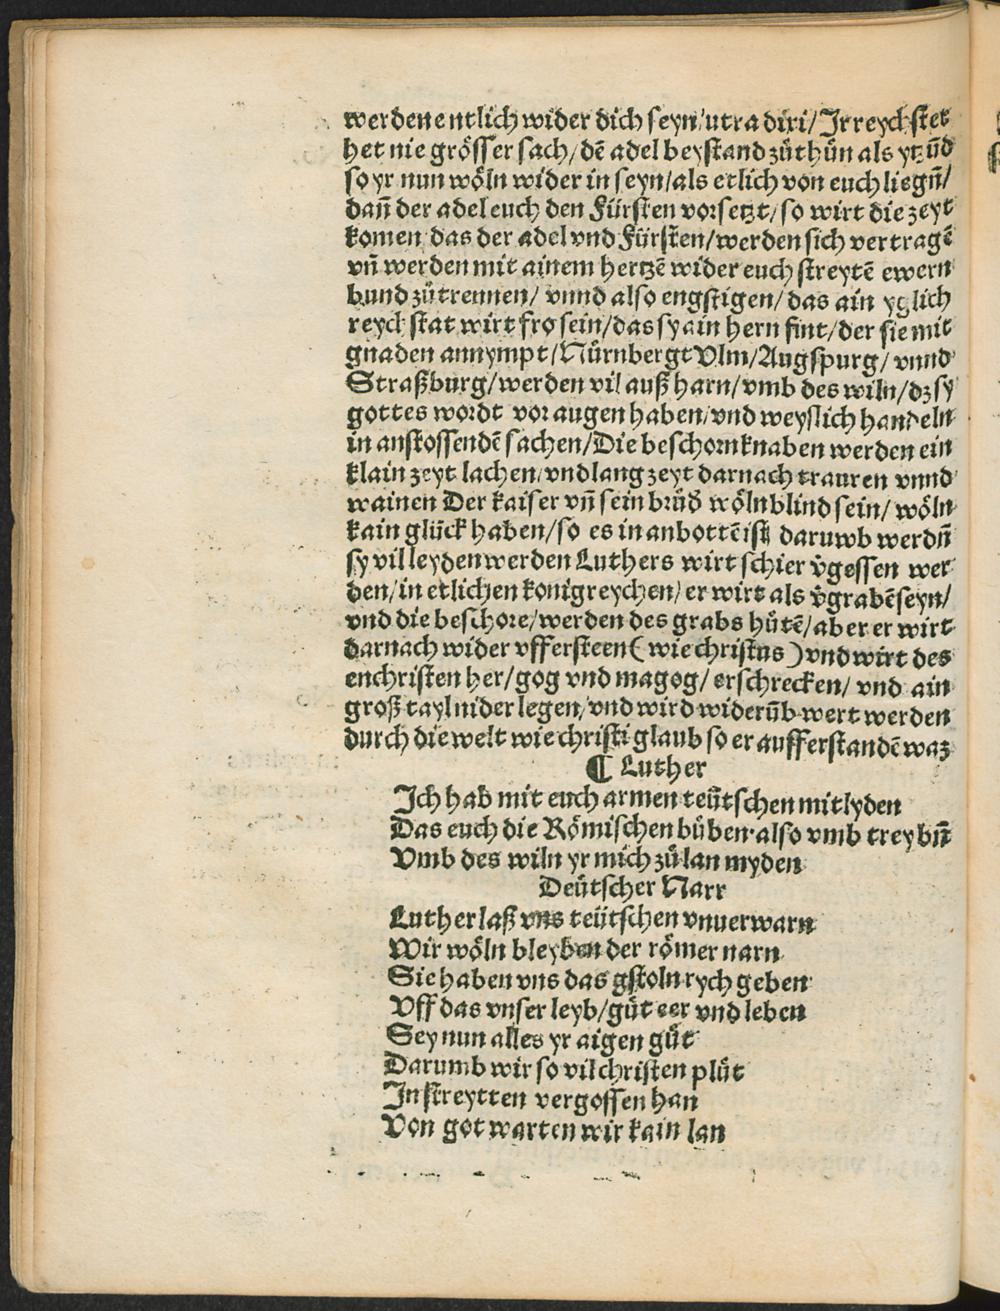 werden entlich wider dich seyn/utra diri/Jr reychstet
het nie grösser sach/dē adel beystand zůthůn als ytzūd
so yr nun wöln wider in seyn/als etlich von euch liegn̄/
dan̄ der adel euch den Fürsten vorsetzt/so wirt die zeyt
komen das der adel vnd Fürsten/werden sich vertragē
vn̄ werden mit ainem hertzē wider euch streytē ewern
bund zůtrennen/ vnnd also engstigen/das ain yglich
reychstat wirt fro sein/das sy ain hern fint/der sie mit
gnaden annympt/Nürnbergt Vlm/Augspurg/ vnnd
Straßburg/werden vil außharn/vmb des wiln/dz sy
gottes wordt vor augen haben/vnd weyslich handeln
in anstossendē sachen/Die beschorn knaben werden ein
klain zeyt lachen/vnd lang zeyt darnach trauren vnnd
wainen Der kaiser vn̄ sein brůd wöln blind sein/ wöln
kain glück haben/so es in anbottē ist/ daruwb werdn̄
sy vil leyden werden Luthers wirt schier v̄gessen wer
den/in etlichen konigreychen/er wirt als v̄grabē seyn/
vnd die beschore/werden des grabs hůtē/aber er wirt
darnach wider vffersteen( wie christus )vnd wirt des
enchristen her/gog vnd magog/ erschrecken/ vnd ain
groß tayl niderlegen/vnd wird widerūb wert werden
durch die welt wie christi glaub so er aufferstandē waz
¶ Luther
Ich hab mit euch armen teütschen mitlyden
Das euch die Römischen bůben also vmb treybn̄
Vmb des wiln yr mich zů lan myden
Deütscher Narr
Luther laß vns teütschen vnuerwarn
Wir wöln bleyben der römer narn
Sie haben vns das gstoln rych geben
Vff das vnser leyb/gůt eer vnd leben
Sey nun alles yr aigen gůt
Darumb wir so vil christen plůt
In streytten vergossen han
Von got warten wir kain lan